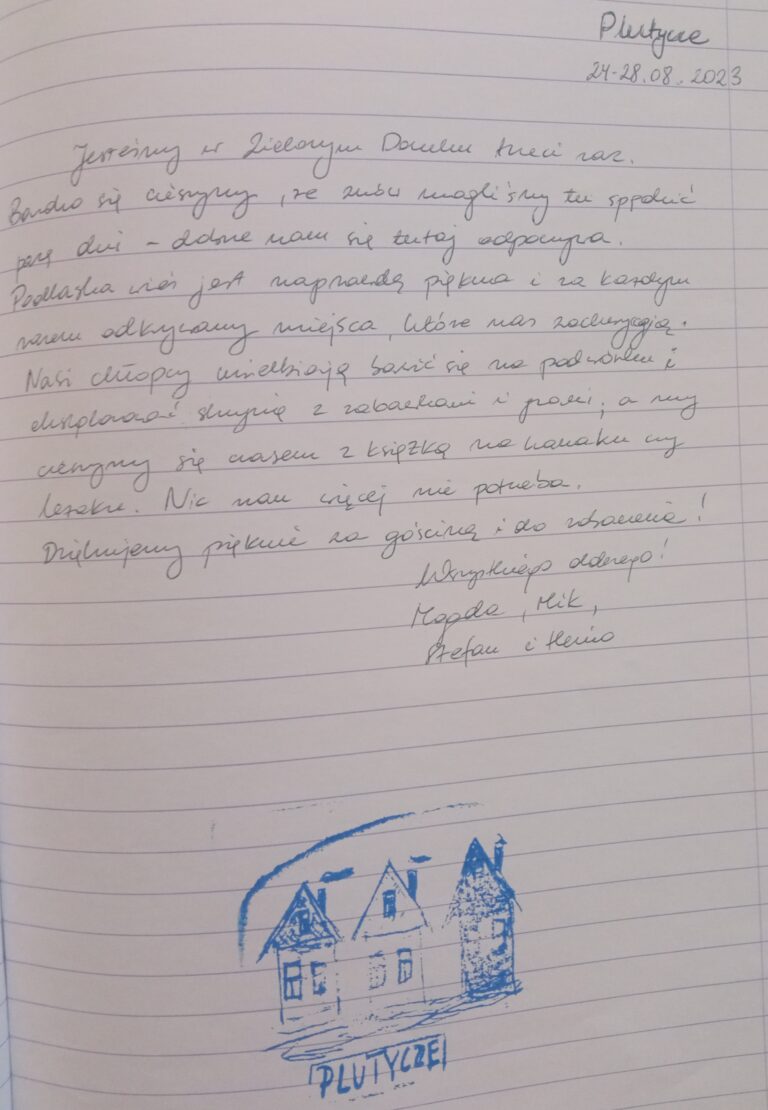 Plutycze
24-28.08.2023
Jesteśmy w Zielonym Domku trzeci raz.
Bardzo się cieszymy, że znów mogliśmy tu spędzić
parę dni – dobrze nam się tutaj odpoczywa.
Podlaska wieś jest naprawdę piękna i za każdym
razem odkrywamy miejsca, które nas zachwycają.
Nasi chłopcy uwielbiają bawić się na podwórku i
eksplorować skrzynię z zabawkami i grami, a my
cieszymy się czasem z książką na hamaku czy
leżaku. Nic nam więcej nie potrzeba.
Dziękujemy pięknie za gościnę i do zobaczenia!
Wszystkiego dobrego!
Magda, Mik,
Stefan i Henio
PLUTYCZE